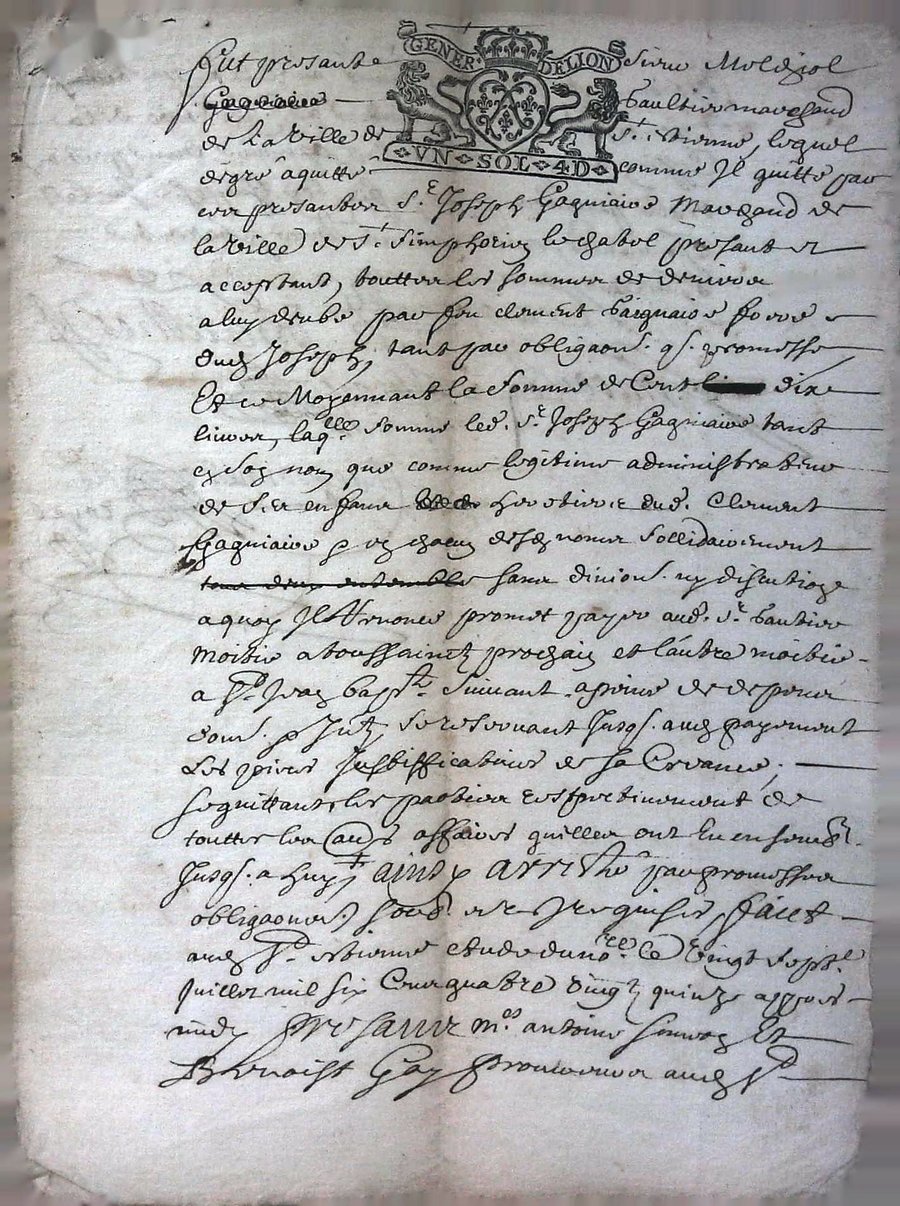 GENER· DELION
VN · SOL · 4D ·
Fut presante sieur Melchiol
Gagniaire Gaultier marchand
de La Ville de St. estienne, lequel
de gré a quitté comme Jl quitte par
ces presantes Sr. Joseph Gagniaire Marchand de
la Ville de St. Simphorien le chatel presant et
acceptant, touttes les sommes de deniers
a luy deubs par feu clement Gaigniaire frere
dud Joseph, tant par obligaons. qs. promesse
Et ce Moyennant la somme de Cent dix
livres, laqlle somme led. Sr. Joseph Gagniaire tant
en son nom que comme legitime administrateur
de ses enfans heretiers dud. Clement
Gagniaire p en chacun desd noms sollidairement
tous deux ensemble sans divions. ny discutions
a quoy Jl Renonce promet payer aud. Sr. Gautier
Moitie a toussainctz prochain et l'autre moitie
a St Jean bapte. suivant a peine de depens
doms. p Jntz se reservant Jusqs. aud payement
Les pieces Justifficatives de sa Creance,
se quittants les parties respectivement de
touttes les auts affaires quilles ont Eu ensembl.
Jusqs. a huy, ainsy arresté par promesses
obligaons. soubs et requises, faict
aud St. estienne etude du nore. le vingt septe.
Juillet mil six Cens quatre vingtz quinze appres
midy presans mes antoine et
Benoist Gay procureurs aud St